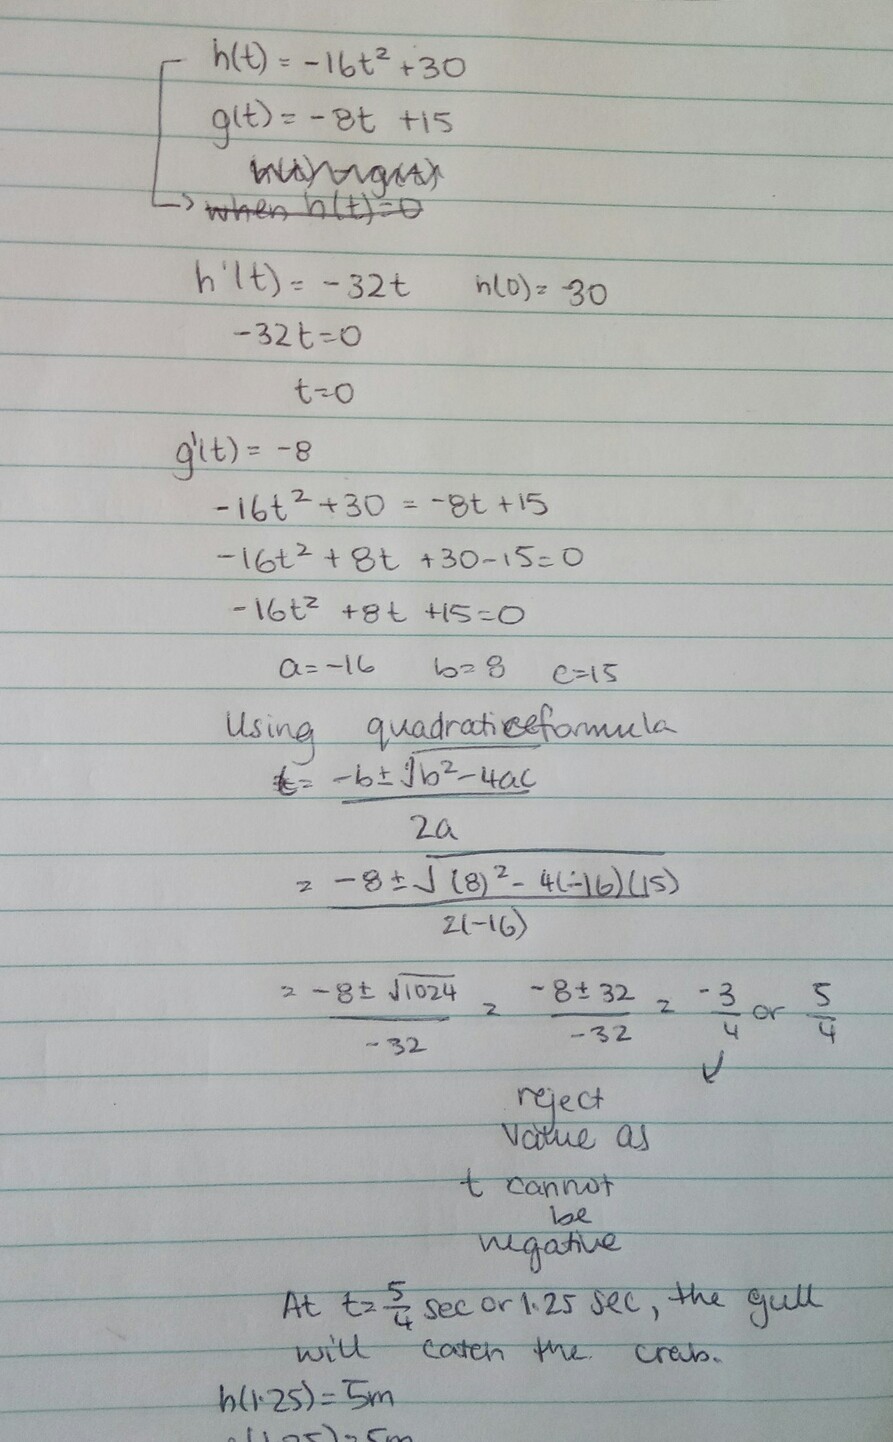 h(t) = -16t² + 30
g(t) = -8t + 15
h(t) = g(t)
when h(t)=0
h'(t) = -32t h(0) = 30
-32t=0
t=0
g'(t) = -8
-16t² + 30 = -8t + 15
-16t² + 8t + 30 - 15 = 0
-16t² + 8t + 15 = 0
a = -16 b = 8 c = 15
Using quadratic formula
t = (-b ± √(b² - 4ac)) / 2a
= (-8 ± √((8)² - 4(-16)(15))) / 2(-16)
= (-8 ± √1024) / -32 = (-8 ± 32) / -32 = -3/4 or 5/4
↓
reject
value as
t cannot
be
negative
At t = 5/4 sec or 1.25 sec, the gull
will catch the crab.
h(1.25) = 5m
g(1.25) = 5m